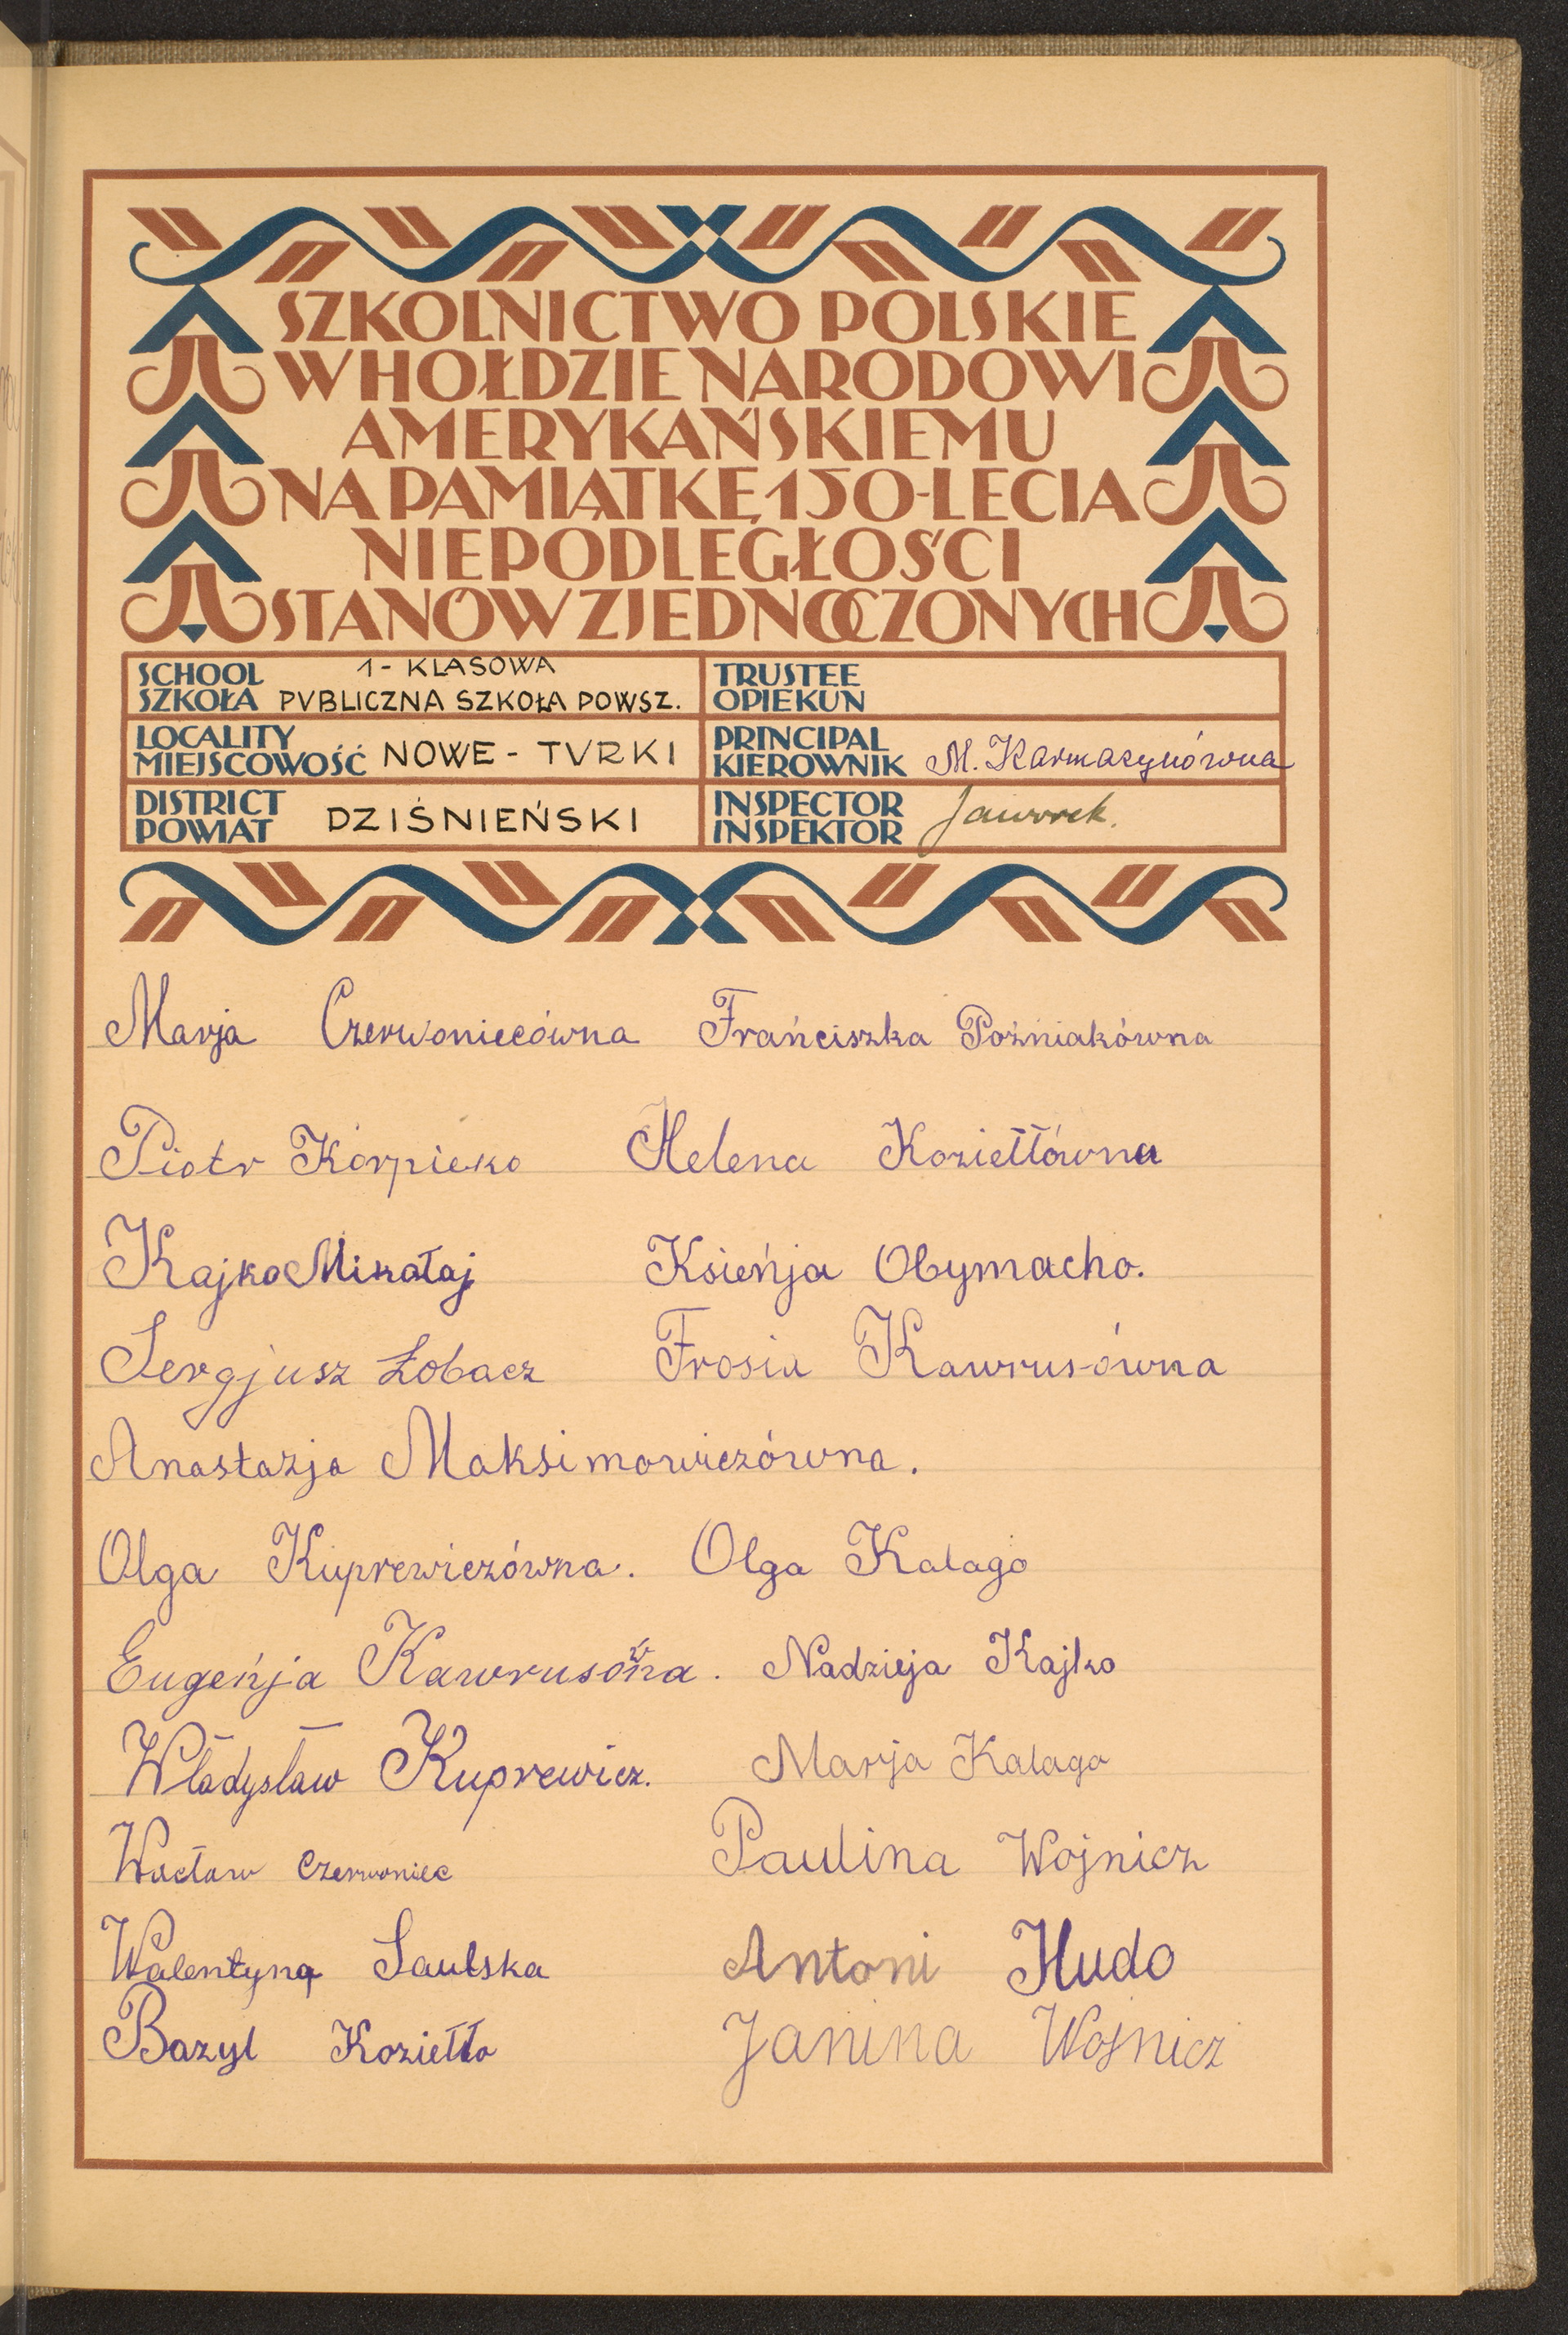 SZKOLNICTWO POLSKIE
W HOŁDZIE NARODOWI
AMERYKAŃSKIEMU
NA PAMIĄTKĘ 150-LECIA
NIEPODLEGŁOŚCI
STANÓW ZJEDNOCZONYCH
SCHOOL SZKOŁA 1-KLASOWA PVBLICZNA SZKOŁA POWSZ.
TRUSTEE OPIEKUN
LOCALITY MIEJSCOWOŚĆ NOWE - TVRKI
PRINCIPAL KIEROWNIK M. Karmazynówna
DISTRICT POWIAT DZIŚNIEŃSKI
INSPECTOR INSPEKTOR Jaworek.
Marja Czerwoniecówna Frańciszka Poźniakówna
Piotr Korpieko Helena Koziełłówna
Kajko Mikałaj Ksieńja Obymacho.
Sergjusz Łobacz Frosia Kawrusówna
Anastazja Maksimowiczówna.
Olga Kuprewiczówna. Olga Kalago
Eugeńja Kawrusówna. Nadzieja Kajko
Władysław Kuprewicz. Marja Kalago
Wacław Czerwoniec Paulina Wojnicz
Walentyna Saulska Antoni Hudo
Bazyl Koziełło Janina Wojnicz